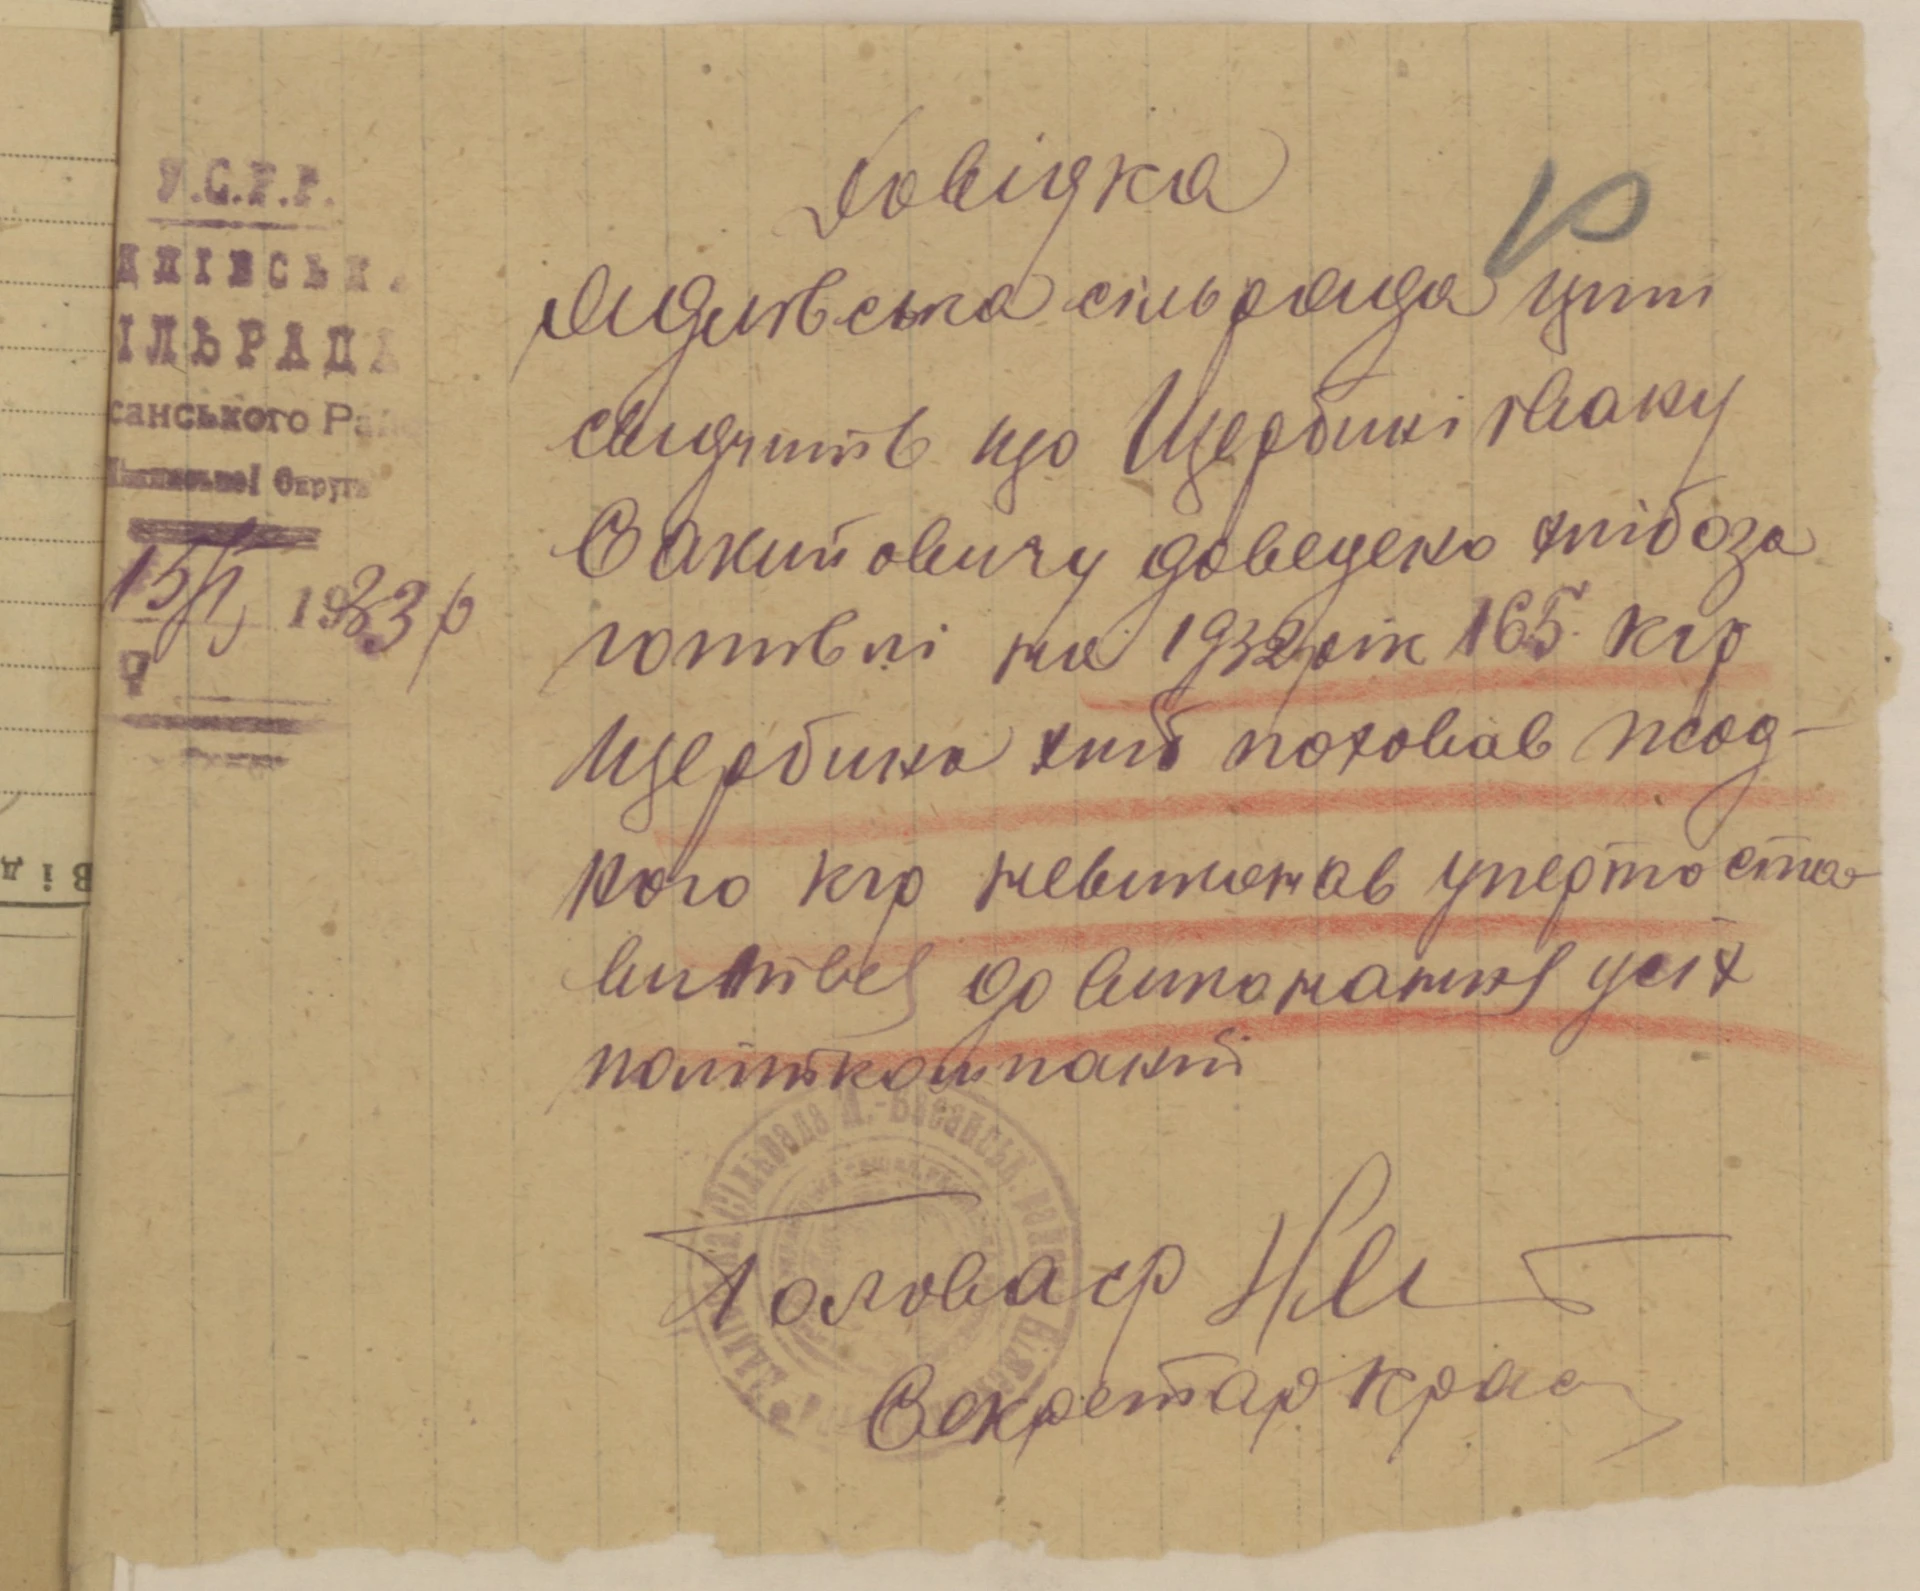 У.С.Р.Р.
ІЛЬРАДА
санського Рай
Округи
15/І 1933 р
Довідка
сільрада цим
свидчить що Щербині Якову
Єакимовичу доведено хлібоза
готівлі на 1932 рік 165 кгр
Щербина хліб поховав жод-
ного кгр невиконав уперто ста
виться до виконання усіх
политкомпаній
Голова ср
Секретар Крас
Сільрада Н.-Басанськ. рай
Від